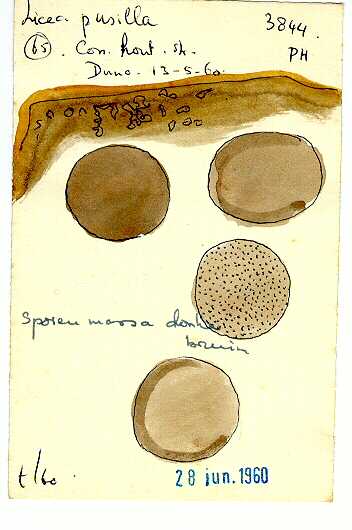 Licea pusilla
3844.
(65). Con. hout. st.
PH
Duno. 13-5-60.
Sporen massa donker
bruin
t/60
28 jun. 1960